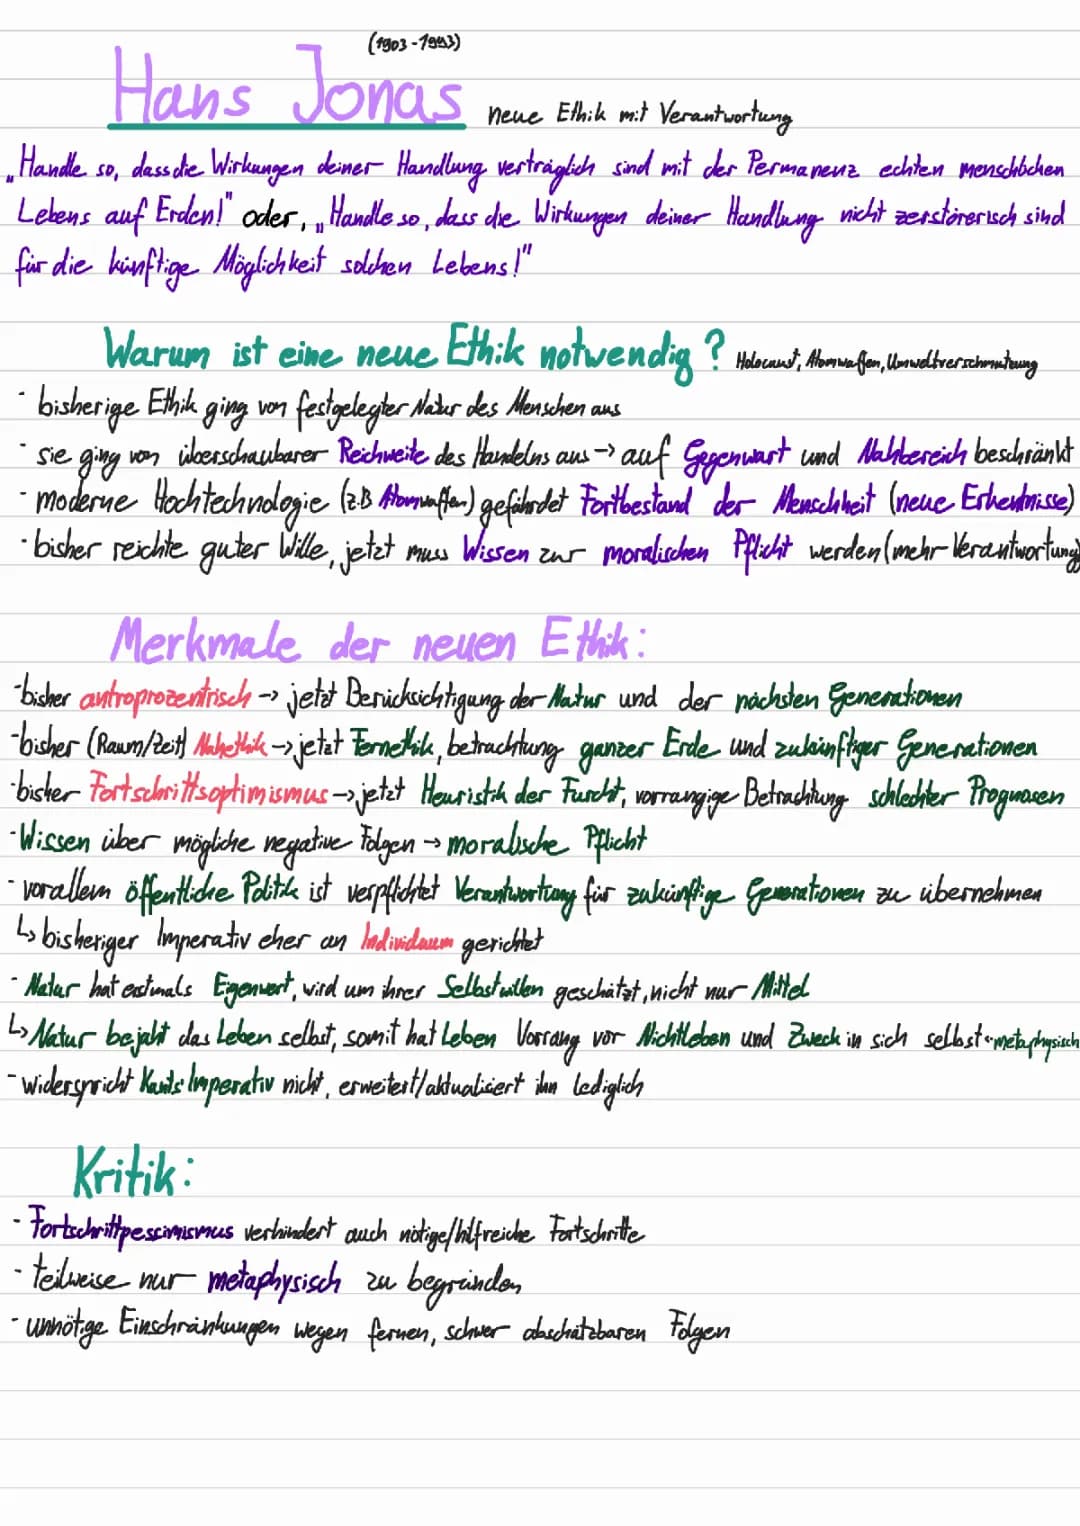 (1903-1993)
Hans Jonas neue Ethik mit Verantwortung
„Handle so, dass die Wirkungen deiner Handlung verträglich sind mit der Permanenz echten menschlichen
Lebens auf Erden!" oder, „Handle so, dass die Wirkungen deiner Handlung nicht zerstörerisch sind
für die künftige Möglichkeit solchen Lebens!"
Warum ist eine neue Ethik notwendig? Holocaust, Atomwaffen, Umweltverschmutzung
- bisherige Ethik ging von festgelegter Natur des Menschen aus
- sie ging von überschaubarer Reichweite des Handelns aus -> auf Gegenwart und Nahbereich beschränkt
- moderne Hochtechnologie (z.B Atomwaffen) gefährdet Fortbestand der Menschheit (neue Erkentnisse)
- bisher reichte guter Wille, jetzt muss Wissen zur moralischen Pflicht werden (mehr Verantwortung)
Merkmale der neuen Ethik:
- bisher antroprozentrisch -> jetzt Berücksichtigung der Natur und der nächsten Generationen
- bisher (Raum/Zeit) Nahethik -> jetzt Fernethik, betrachtung ganzer Erde und zukünftiger Generationen
- bisher Fortschrittsoptimismus -> jetzt Heuristik der Furcht, vorrangige Betrachtung schlechter Prognosen
- Wissen über mögliche negative Folgen -> moralische Pflicht
- vorallem öffentliche Politik ist verpflichtet Verantwortung für zukünftige Generationen zu übernehmen
↳ bisheriger Imperativ eher an Individuum gerichtet
- Natur hat erstmals Eigenwert, wird um ihrer Selbst willen geschätzt, nicht nur Mittel
↳ Natur bejaht das Leben selbst, somit hat Leben Vorrang vor Nichtleben und Zweck in sich selbst metaphysisch
- widerspricht Kants Imperativ nicht, erweitert/aktualisiert ihn lediglich
Kritik:
- Fortschrittpessimismus verhindert auch nötige/hilfreiche Fortschritte
- teilweise nur metaphysisch zu begründen
- unnötige Einschränkungen wegen fernen, schwer abschätzbaren Folgen